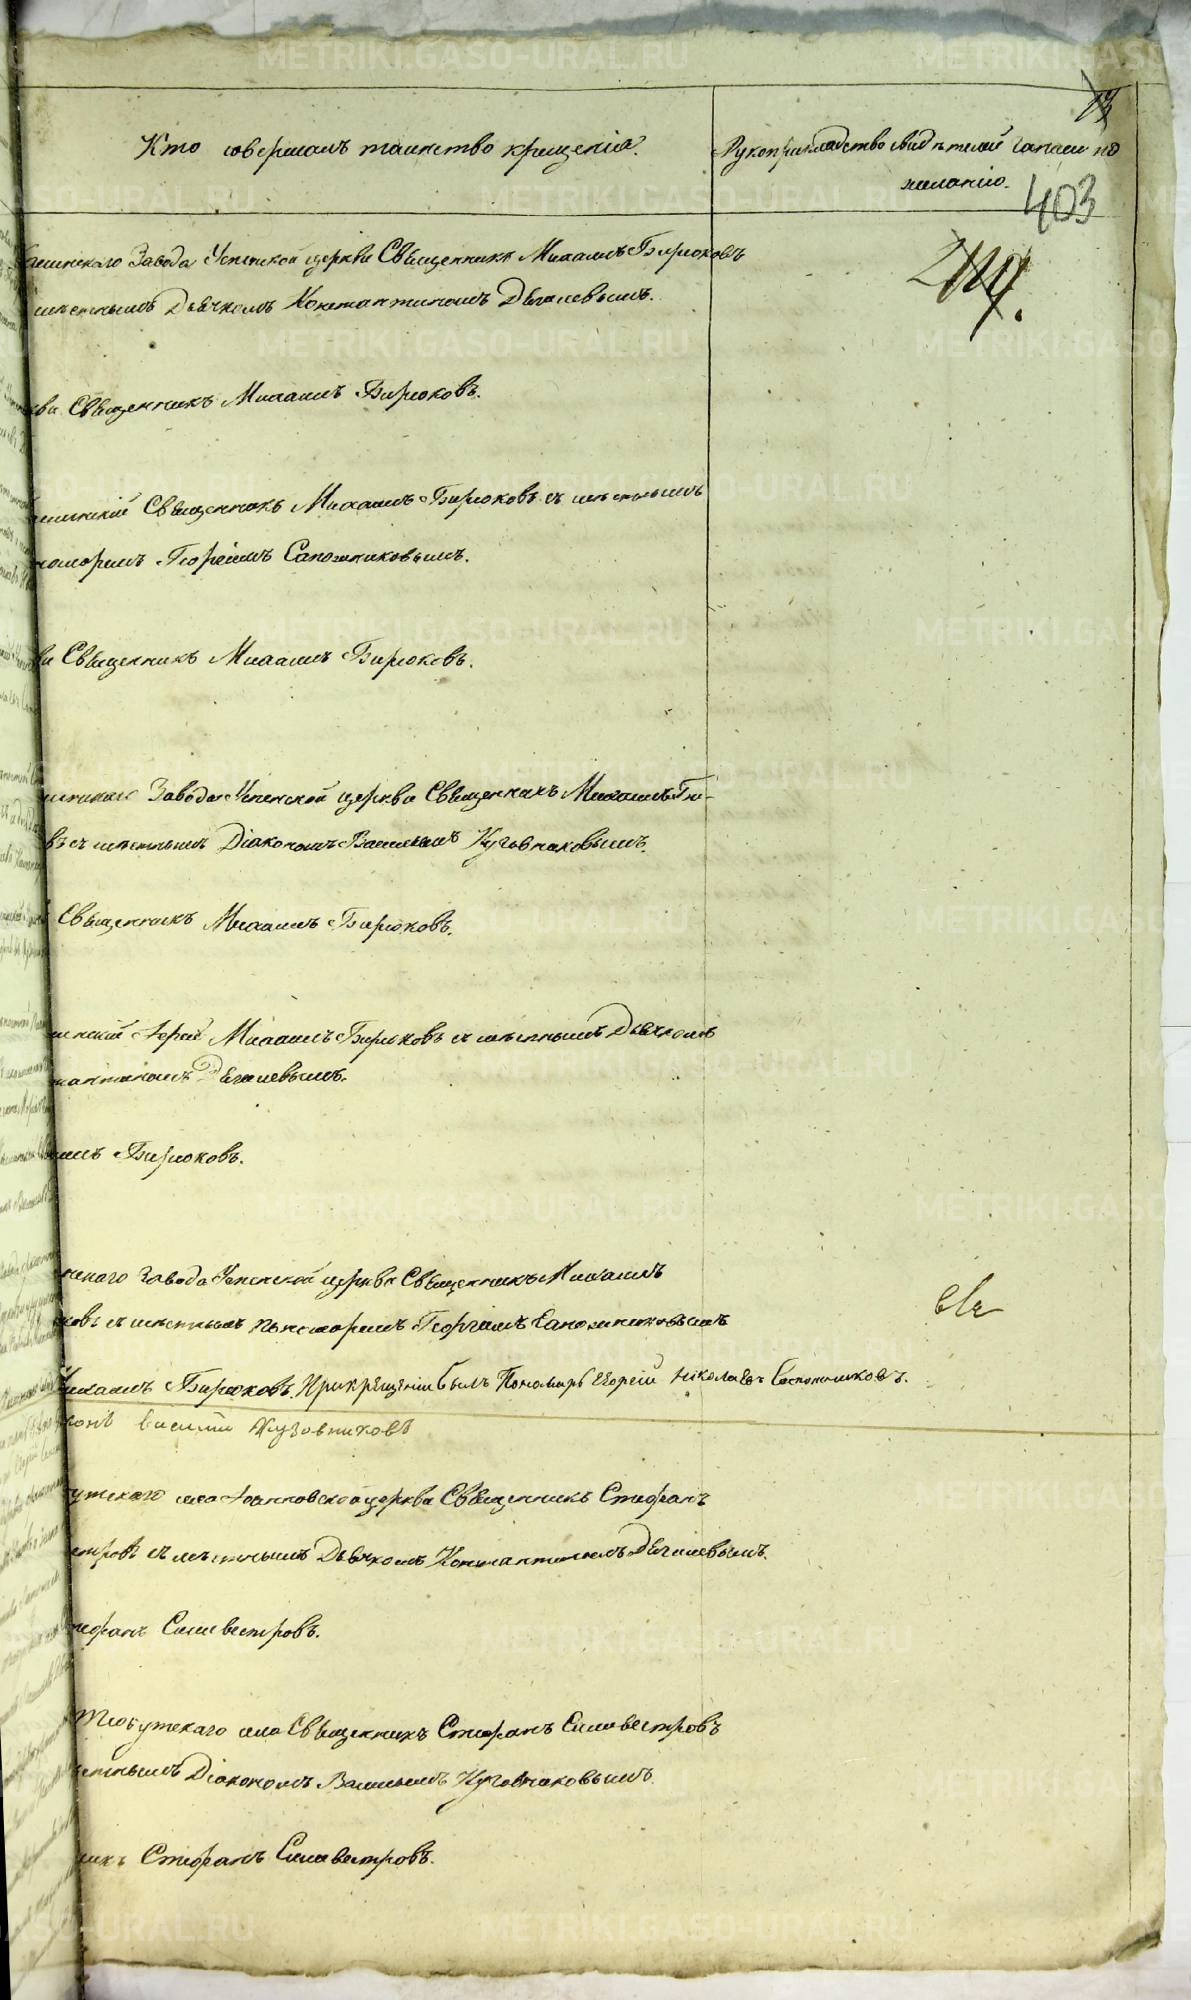 Кто совершалъ таинство крещенія.
Рукоприкладство свидѣтелей записи по
желанію.
403
Завода Успенской церкви Священникъ Михаилъ Бирюковъ
мѣстнымъ Дьячкомъ Константиномъ
Священникъ Михаилъ Бирюковъ.
Священникъ Михаилъ Бирюковъ съ мѣстнымъ
Георгіемъ Сапожниковымъ.
Священникъ Михаилъ Бирюковъ.
Завода Успенской церкви Священникъ Михаилъ Би-
въ съ мѣстнымъ Діакономъ Василіемъ Кузовниковымъ.
Священникъ Михаилъ Бирюковъ.
Іерей Михаилъ Бирюковъ съ мѣстнымъ Дьячкомъ
Бирюковъ.
Завода Успенской церкви Священникъ Михаилъ
ковъ съ мѣстнымъ Пономаремъ Георгіемъ Сапожниковымъ
Михаилъ Бирюковъ. При крещеніи былъ Пономарь Георгій Николаевъ Сапожниковъ.
Василій Кузовниковъ
утскаго села Іоанновской церкви Священникъ Стефанъ
съ мѣстнымъ Дьячкомъ Константиномъ
Стефанъ Силивестровъ.
утскаго села Священникъ Стефанъ Силивестровъ
мѣстнымъ Діакономъ Василіемъ Кузовниковымъ.
Стефанъ Силивестровъ.